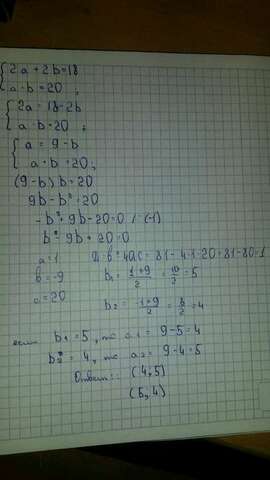 2a + 2b = 18
a · b = 20 ;
2a = 18 - 2b
a · b = 20 ;
a = 9 - b
a · b = 20 ;
(9 - b) b = 20
9b - b² = 20
- b² + 9b - 20 = 0 / · (-1)
b² - 9b + 20 = 0
a = 1 D = b² - 4ac = 81 - 4·1·20 = 81 - 80 = 1
b = -9 b₁ = 1+9/2 = 10/2 = 5
c = 20
b₂ = -1+9/2 = 8/2 = 4
если b₁ = 5, то a₁ = 9 - 5 = 4
b₂ = 4, то a₂ = 9 - 4 = 5
Ответ: (4, 5)
(5, 4)